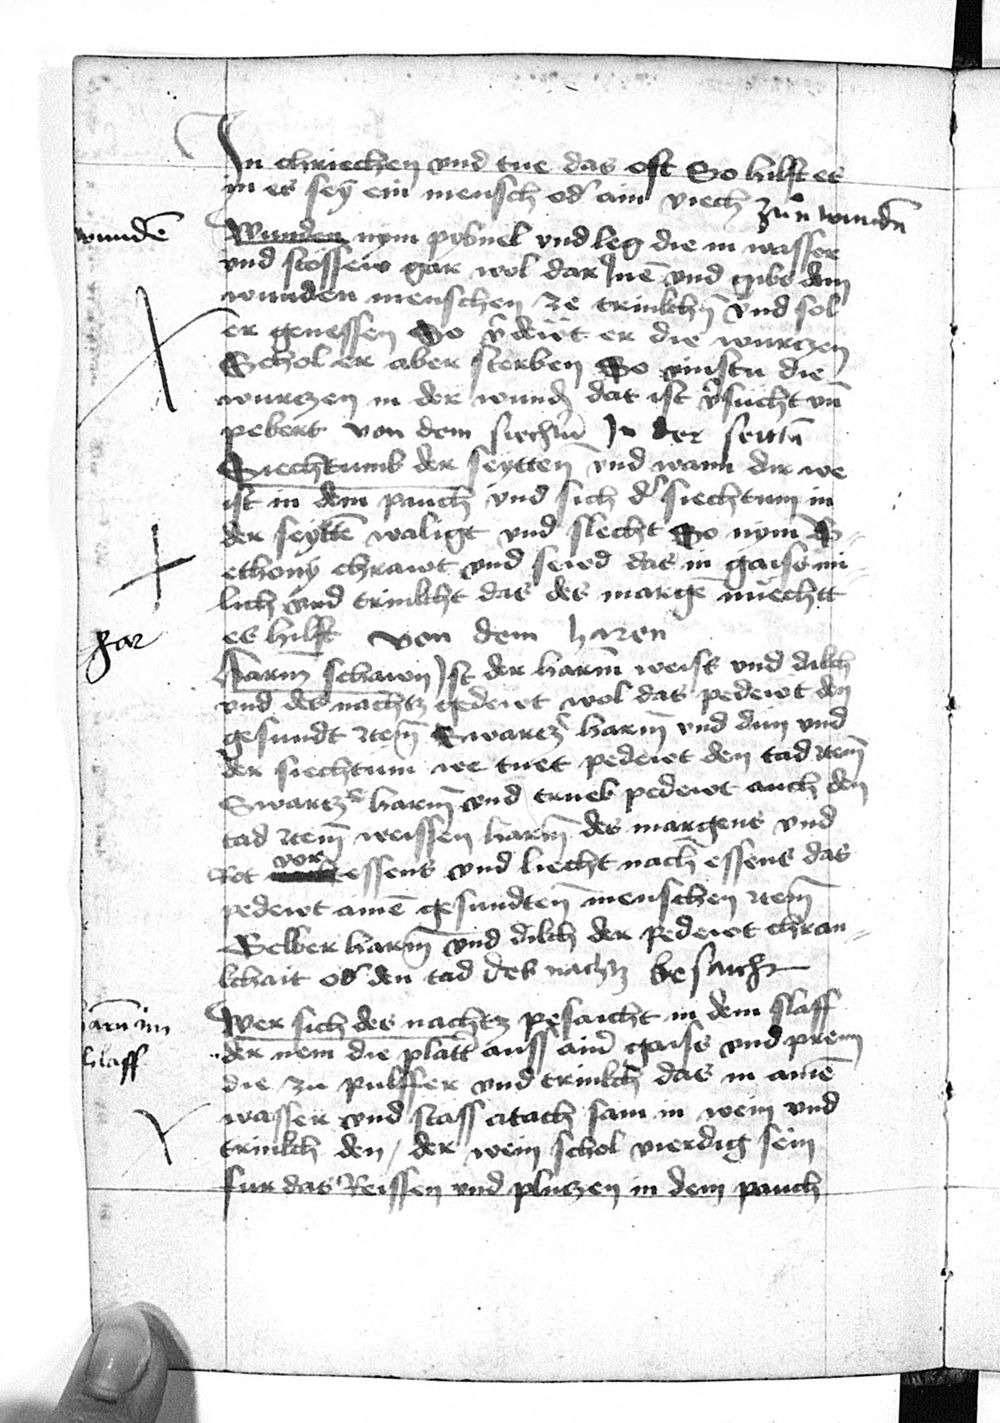 In chriechen vnd tue das oft So hilft es
in es sey ein mensch od' ain viech zun wundn̄
wundē
Wunden nym pybnel vnd leg die in wasser
vnd stossew gar wol dar Inē vnd gibs dem
wunden menschen ze trinkchn̄ vnd sol
er genessen So v̄dewt er die wurczen
Schol er aber sterben So vinstu die
wurczen in der wundn̄ dat ist v̄sucht vn̄
pebert von dem siechtū In der seittn̄
Siechtumb der seyttn̄ vnd wann dir we
ist in dem pauch vnd sich d' siechtum in
der seyttē waligt vnd slecht So nym B-
ethony chrawt vnd sewd das in gaissmi-
lich vnd trinkcht das des margē nuechtt
es hilft von dem haren
har
Harm̄ schawn Ist der harm̄ weiss vnd dikch
vnd des nachtz gedewt wol das pedewt den
gesundt Item̄ Swarcz' harm̄ vnd dun vnd
der siechtum we tuet pedewt den tad Item̄
Swarcz' harm̄ vnd trueb pedewt auch den
tad Item̄ weissen harm̄ des margens vnd
Rot vor essens vnd liecht nach essens das
pedewt ainē gesundten̄ menschen Item̄
Gelber harm̄ vnd dikch der pedewt chran-
kchait od' den tad des nachtz besaicht
harn im
schlaff
Wer sich des nachtz pesaicht in dem slaff
der nem die platt' auss ain' gaiss vnd prenn
die zu puluer vnd trinkch das in ainē
wasser vnd stoss atach sam in wein vnd
trinkch den / der wein schol vierdig sein
fur das Reissen vnd pluczen in dem pauch